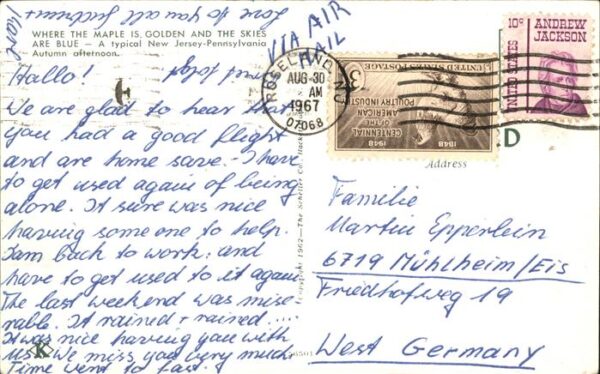 Love to you all
WHERE THE MAPLE IS GOLDEN AND THE SKIES
ARE BLUE — A typical New Jersey-Pennsylvania
Autumn afternoon.
VIA AIR
MAIL
Hallo!
We are glad to hear that
you had a good flight
and are home save. I have
to get used again of being
alone. It sure was nice
having someone to help.
I am back to work, and
have to get used to it again.
The last weekend was mise-
rable. It rained + rained ....
It was nice having you with
us. We miss you very much.
Time went to fast.
K
ROSELAND, NJ
AUG 30
AM
1967
07068
UNITED STATES POSTAGE
3¢
CENTENNIAL
OF THE
AMERICAN
POULTRY INDUSTRY
1848
1948
10c ANDREW
JACKSON
UNITED STATES
D
Address
Familie
Martin Epperlein
6719 Mühlheim/Eis
Friedhofweg 19
West Germany